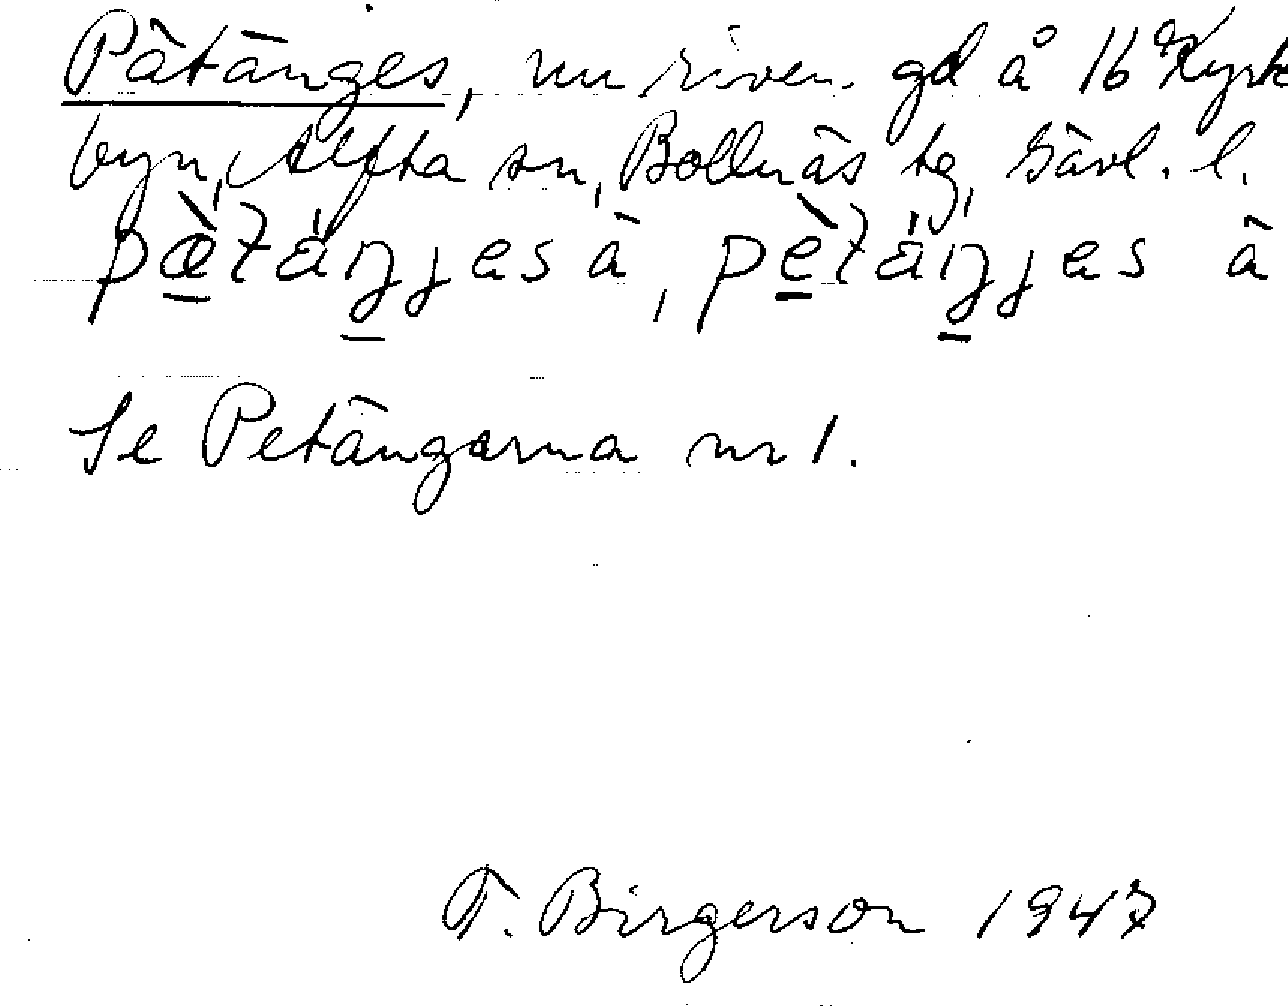 Pätänges, nu riven gd å 16 Kyrk
byn, Alfta sn, Bollnäs tg, Gävl. l.
pæ̀täŋjes ä, pètäŋjes ä
Se Petängarna nr 1.
T. Birgerson 1947